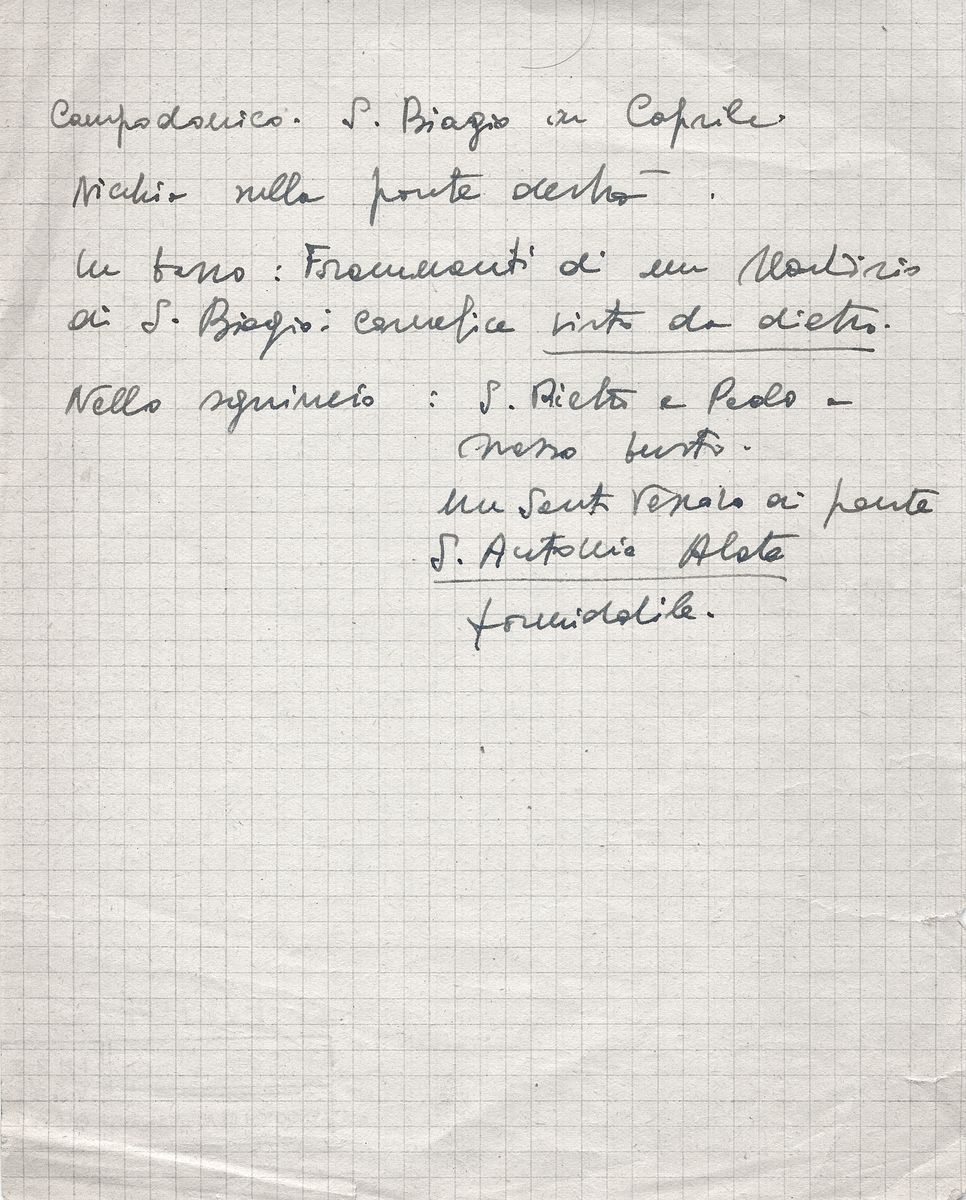 Campodonico. S. Biagio in Caprile.
Nicchia sulla parete destra.
In basso: Frammenti di un Martirio
di S. Biagio: carnefice visto da dietro.
Nello sguincio: S. Pietro e Paolo a
mezzo busto.
Un Santo Vescovo di fronte
S. Antonio Abate
formidabile.